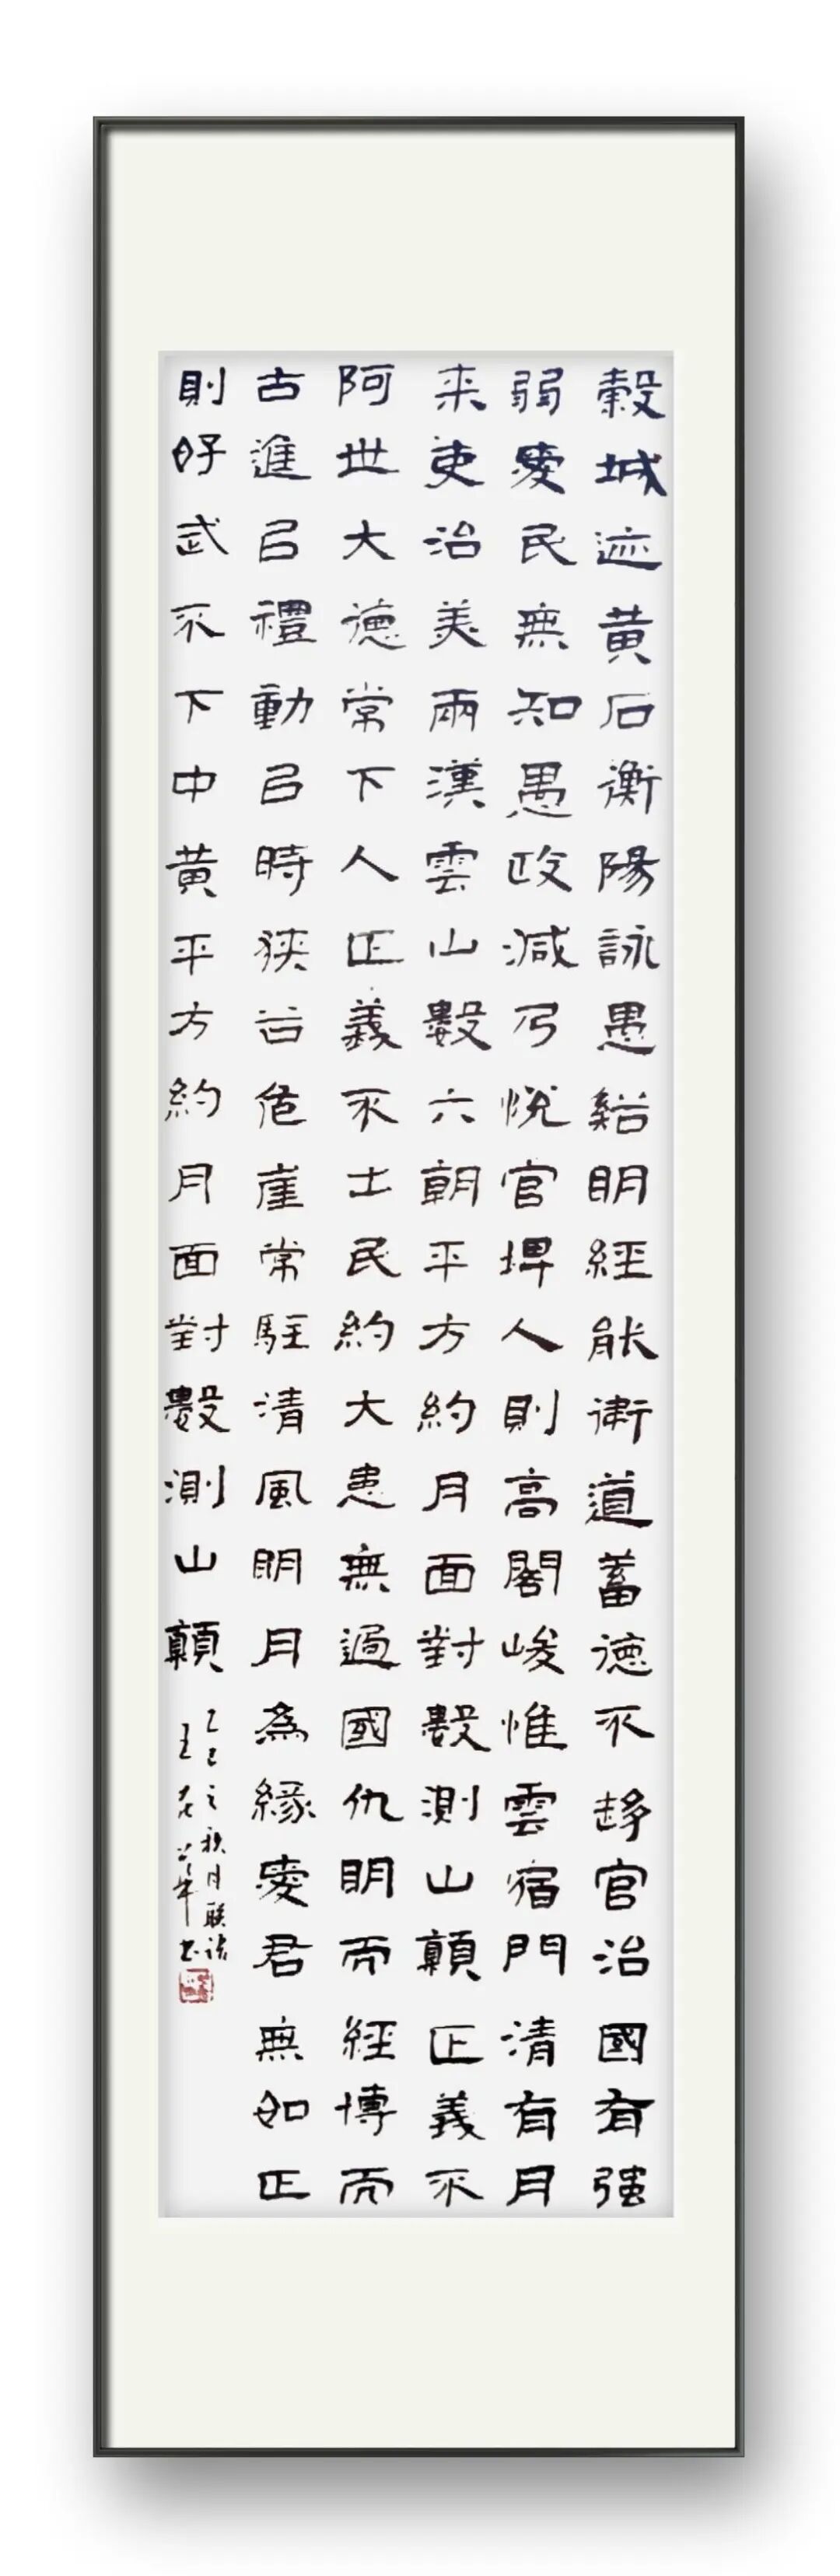 穀城迹黄石衡陽詠愚谿明經能衛道蓄德不趍官治國有强
弱愛民無知愚政減乃悦官埤人則高閣峻惟雲宿門清有月
来吏治美兩漢雲山數六朝平方約月面對數測山顛正義不
阿世大德常下人正義不士民約大患無過國仇明而經博而
古進㠯禮動㠯時狹谷危崖常駐清風明月為緣愛君無如正
則好武不下中黄平方約月面對數測山顛
乙巳之秋月聯語
王
書